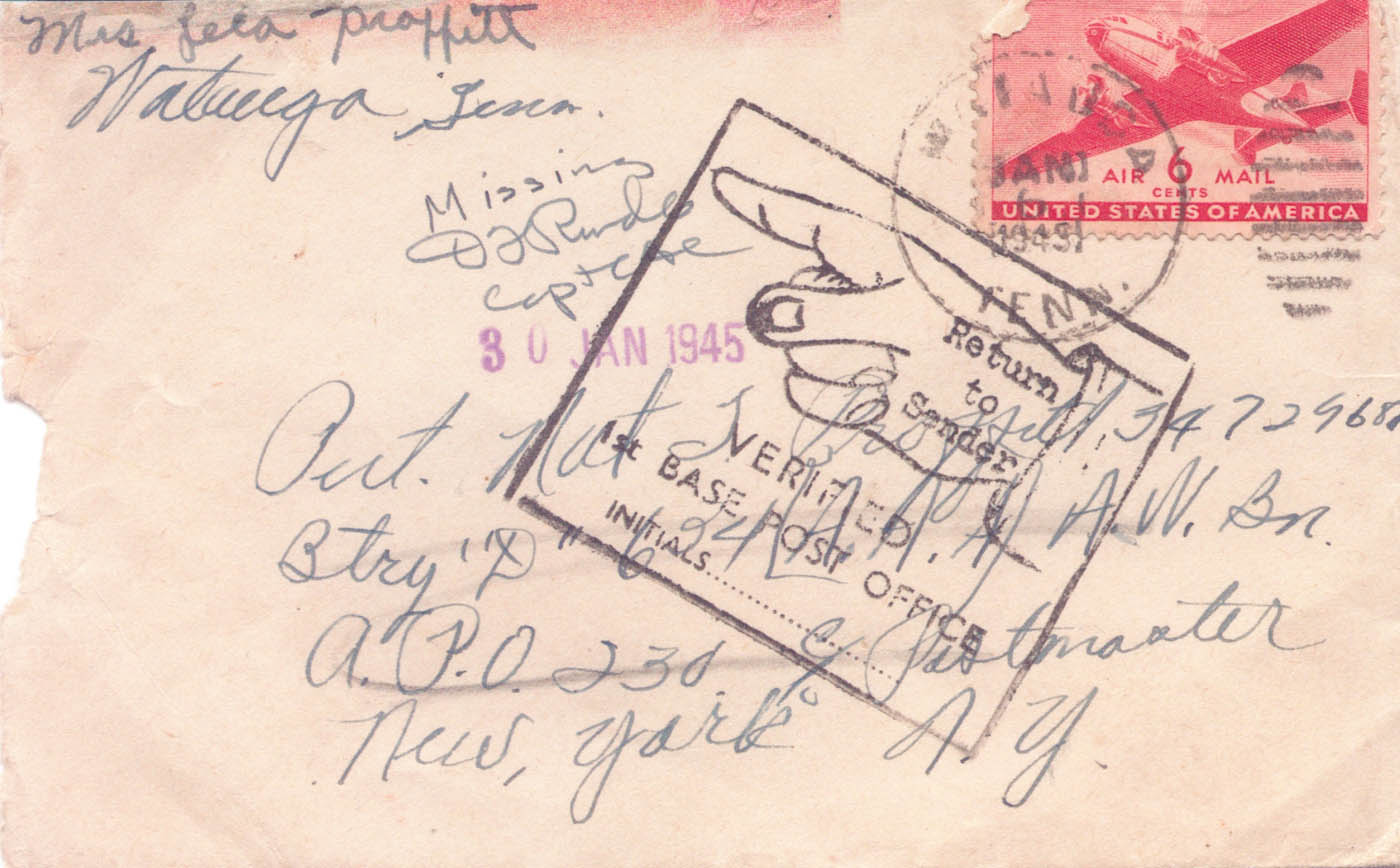 Mrs Lela Proffitt
Watauga, Tenn.
AIR 6 MAIL
CENTS
UNITED STATES OF AMERICA
WATAUGA
JAN
6
1945
TENN.
Missing
Capt CAC
30 JAN 1945
Return
to
Sender
VERIFIED
1st BASE POST OFFICE
INITIALS
Pvt. Nat T. Proffitt 3472968
Btry "D" 634 A.A.A. A.W. Bn.
A.P.O. 230 % Postmaster
New, York N.Y